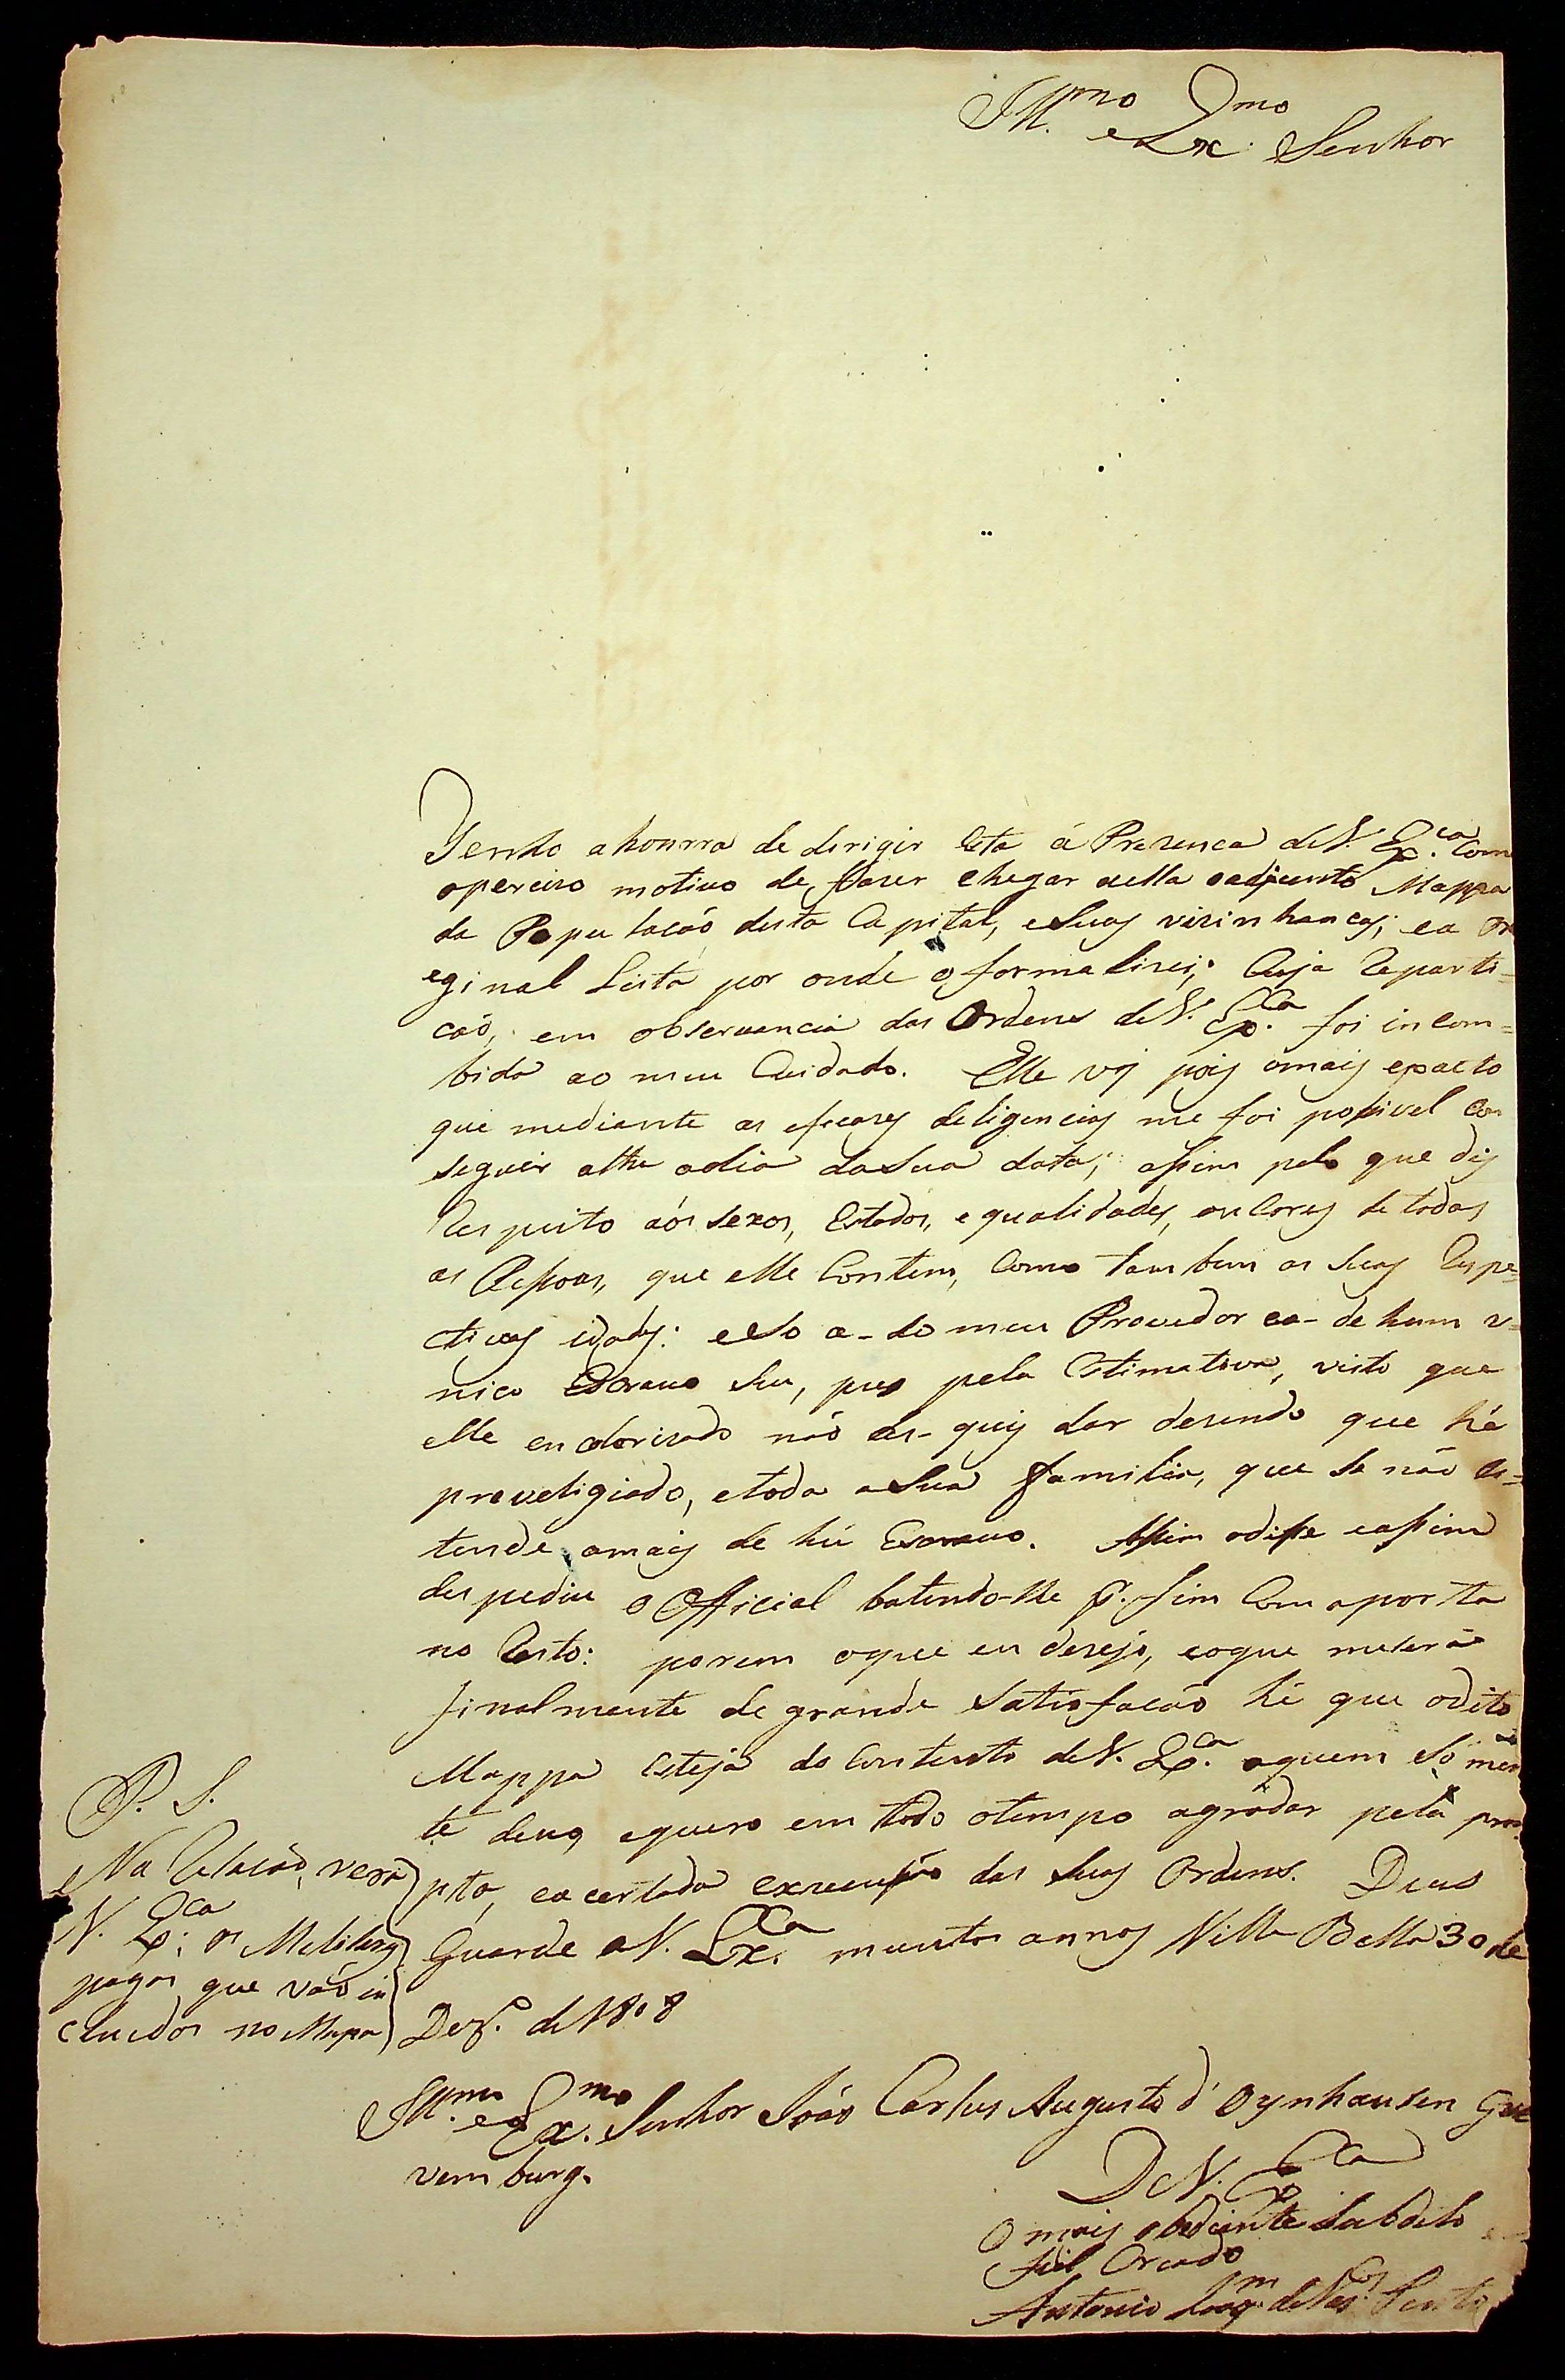 Ill.mo e Ex.mo Senhor
Tenho a honrra de dirigir esta á Prezença de V. Ex.ca Com
o perciso motivo de fazer chegar a ella o adjunto Mappa
da Populacaó desta Capital, e Suas vizinhancas; e a Or
eginal Lista por onde o formalizei; Cuja Reparti=
caó, em observancia das Ordens de V. Ex.ca foi incom=
bida ao meu Cuidado. Elle vai pois o mais exacto
que mediante as eficazes deligencias me foi possivel con
seguir athe o dia da Sua data; assim pelo que diz
Respeito aós sexos, Estados, e qualidades, ou Cores de todas
as Pessoas, que elle Contem, Como tambem as Suas Respe=
ctivas idades: e Só a do meu Provedor e a de hum u=
nico Escravo Seu, pus pela Estimativa, visto que
elle encolorizado não as quiz dar dizendo que hé
previligiado, e toda a Sua familia, que se não es=
tende a mais de hú Escravo. Assim o disse e assim
despediu o Official batendo-lhe p.r fim Com a porta
no Rosto: porem o que eu dezejo, e o que me será
finalmente de grande Satisfacaó hé que o dito
Mappa esteja do Contento de V. Ex.ca a quem Só men
te devo, e quero em todo o tempo agradar pela prom
pta, e acertada execução das Suas Ordens. Deos
Guarde a V. Ex.ca muitos annos Villa Bella 30 de
Dez.o de 1808
Ill.mo e Ex.mo Senhor João Carlos Augusto d' Oynhausen Gre
vemburg.
De V. Ex.ca
O mais obediente Subdito
fiel Criado
Antonio Joaq.m de
P. S.
Na Relacaó, verá
V. Ex.ca os Melitares
pagos que vaó in
cluidos no Mapa